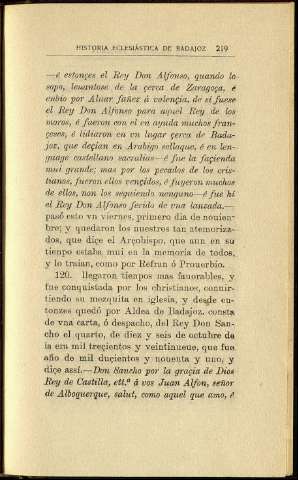 HISTORIA ECLESIÁSTICA DE BADAJOZ 219
—é estonçes el Rey Don Alfonso, quando lo
sopo, leuantose de la çerca de Zaragoça, é
enbio por Aluar fañez á valençia, de si fuese
el Rey Don Alfonso para aquel Rey de los
moros, é fueron con el en ayuda muchos fran-
çeses, é lidiaron en vn lugar çerca de Bada-
joz, que deçian en Arabigo sallaque, é en len-
guage castellano sacralias—é fue la façienda
mui grande; mas por los pecados de los cris-
tianos, fueron ellos vençidos, é fuyeron muchos
de ellos, non los seguiendo nenguno—é fue hi
el Rey Don Alfonso ferido de vna lanzada.—
pasó esto vn viernes, primero dia de nouien-
bre; y quedaron los nuestros tan atemoriza-
dos, que diçe el Arçobispo, que aun en su
tiempo estaba mui en la memoria de todos,
y lo traian, como por Refran ó Prouerbio.
120. llegaron tiempos mas fauorables, y
fue conquistada por los christianos, convir-
tiendo su mezquita en iglesia, y desde en-
tonzes quedó por Aldea de Badajoz. consta
de vna carta, ó despacho, del Rey Don San-
cho el quarto, de diez y seis de octubre de
la era mil treçientos y veintinueue, que fue
año de mil duçientos y nouenta y uno, y
diçe assí.—Don Sancho por la graçia de Dios
Rey de Castilla, ett.ª á vos Juan Alfon, señor
de Alboquerque, salut, como aquel que amo, é